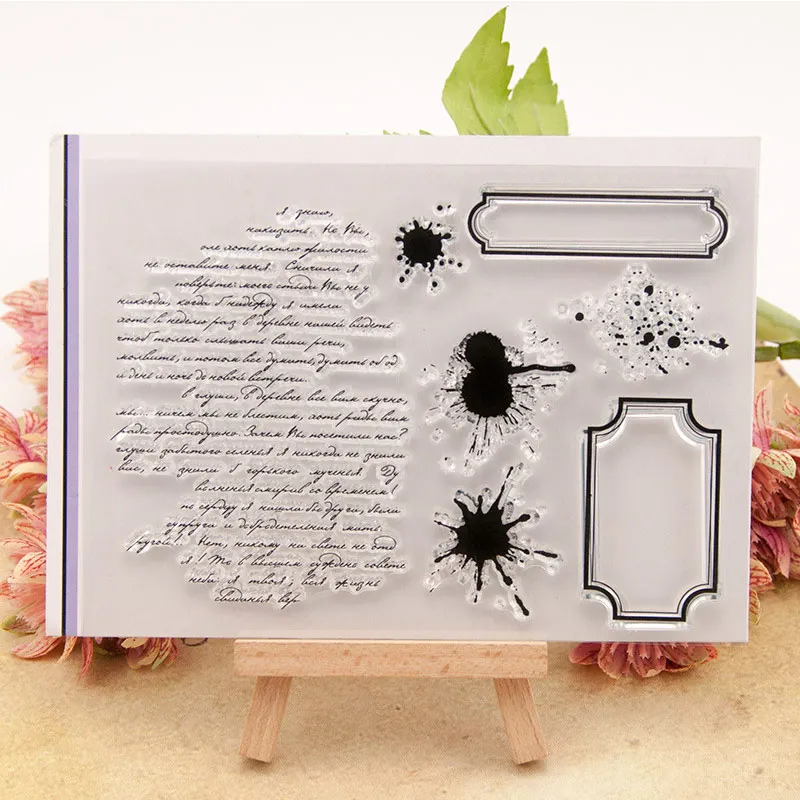 Я знаю,
наказать. Но Вы,
оле хоть каплю жалости
не оставите меня. Сначала я
поверьте: моего стыда Вы не у
никогда, когда б надежду я имела
хоть в неделю раз в деревне нашей видеть
чтоб только слышать ваши речи,
молвить, и потом все думать, думать об од
и день и ночь до новой встречи.
в глуши, в деревне все вам скучно,
мы... ничем мы не блестим, хоть рады вам
рады простодушно. Зачем Вы посетили нас?
глуши забытого селенья я никогда не знала
вас, не знала б горького мученья. Ду
волненья смирив со временем!
по сердцу я нашла бы друга, была
супруга и добродетельная мать.
ругой!.. Нет, никому на свете не отд
я! То в вышнем суждено совете
неба: я твоя; вся жизнь
свиданья вер